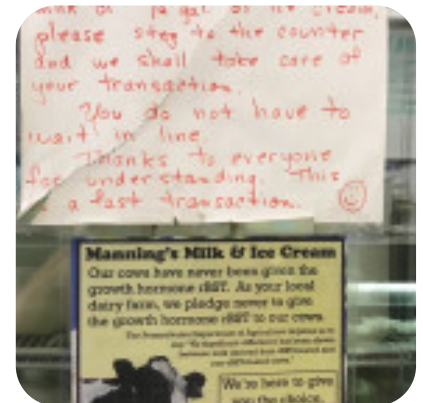 or ½ gal of ice cream,
please step to the counter
and we shall take care of
your transaction.
You do not have to
wait in line.
Thanks to everyone
for understanding. This
is a fast transaction.
Manning's Milk & Ice Cream
Our cows have never been given the
growth hormone rBST. As your local
dairy farm, we pledge never to give
the growth hormone rBST to our cows.
The Pennsylvania Department of Agriculture requires us to
We're here to give
you the choice.